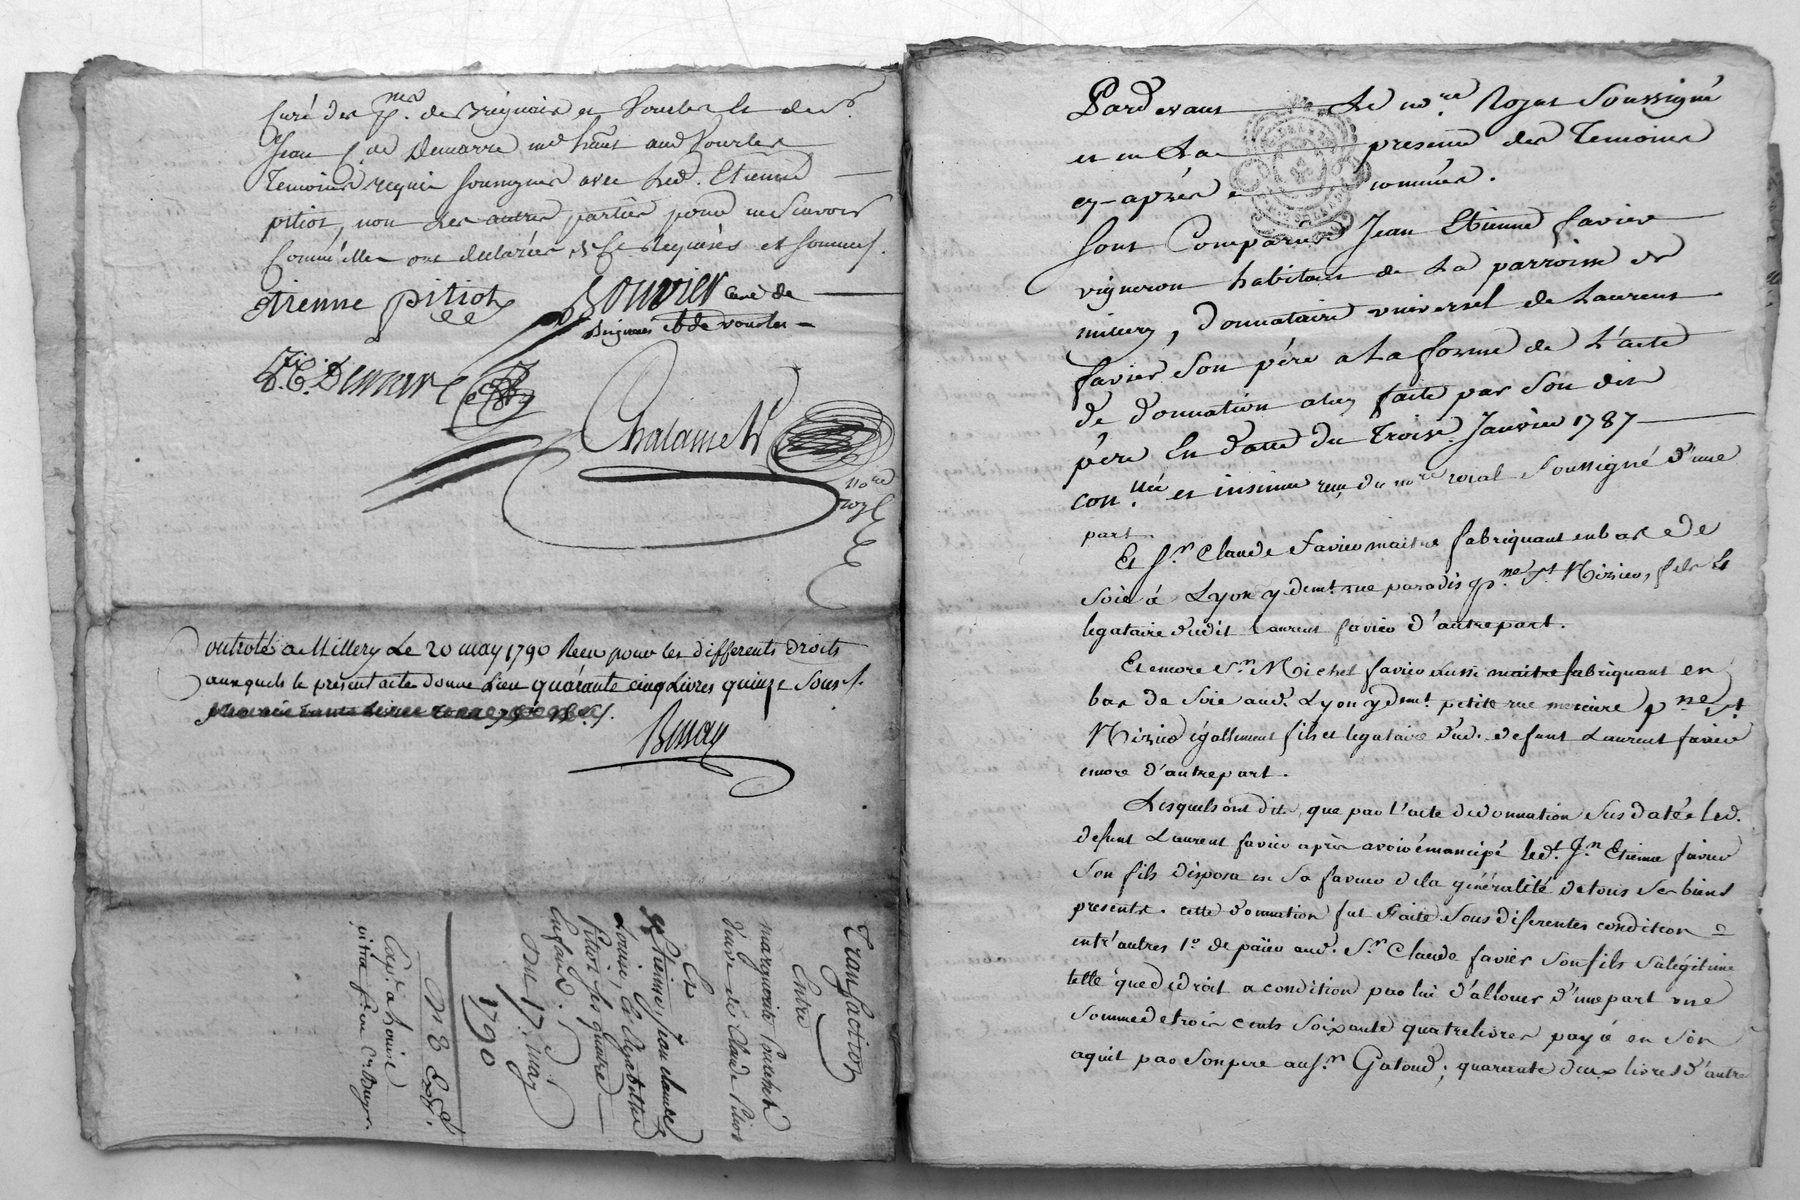 Curé des p.nes de Brignais et Vourles et de s.r
Jean C. de Demarre md hant aud Vourles
temoins requis soussignés avec led. Etienne
pitiot, non les autres parties pour ne sçavoir
comm'elles ont declarées de ce requises et sommées.
etienne pitiot Bouvier curé de
Brignais et de vourles
J. C. Demarre
Chalamel
no.re
roy.l
Controlé a Millery Le 20 may 1790 Recu pour les differents droits
auxquels le present acte donne Lieu quarante cinq Livres quinze sous.
Transaction
Entre
marguerite
veuve de Claude Pitiot
Et
Etienne, jean claude
Louise, et Elizabeth
Pitiot ses quatre
Enfans.
Du 17 may
1790
Pardevant Le no.re Royal Soussigné
et en La presence des Temoins
cy-après nommés.
Sont Comparus Jean Etienne favier
vigneron habitant de La parroisse de
millery, Donnataire universel de Laurent
favier Son père a La forme de L'acte
de donnation a luy faite par Son dit
père En datte du trois Janvier 1787
con.llé et insinué reçu du no.re royal Soussigné d'une
part.
Et S.r Claude Favier maitre fabriquant en bas de
Soie à Lyon y dem.t rue paradis p.sse S.t Nizier, fils et
legataire dudit Laurent favier d'autre part.
Et encore S.r Michel favier aussi maitre fabriquant en
bas de Soie aud. Lyon y dem.t petite rue merciere p.sse S.t
Nizier également fils et legataire dud. defunt Laurent favier
encore d'autre part.
Lesquels ont dit, que par l'acte de donnation Sus daté led.
defunt Laurent favier après avoir émancipé led.t J.n Etienne favier
Son fils disposa en Sa faveur de la généralité de tous Ses biens
presents. cette donnation fut faite Sous diferentes condition
entr'autres 1.o de païer aud. S.r Claude favier Son fils Sa légitime
telle que de droit a condition par lui d'allouer d'une part une
Somme de trois cents Soixante quatre livres payé en Son
aquit par Son pere au S.r Gatoud; quarante deux livres d'autre